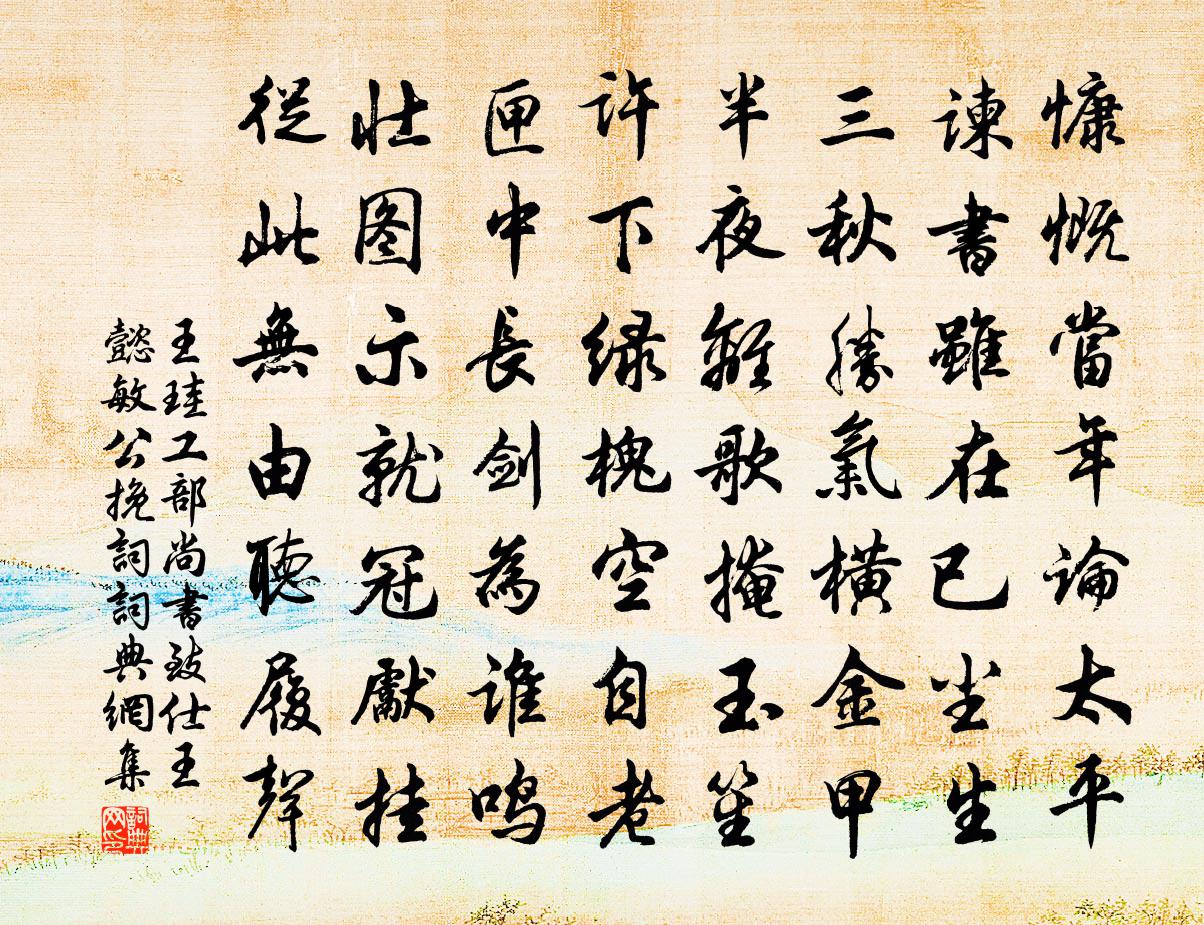 慷慨當年論太平
諫書雖在已尘生
三秋勝氣橫金甲
半夜離歌掩玉笙
許下緑槐空自老
匣中長剑為誰鳴
壮图示就冠獻挂
從此無由聽履聲
王珪工部尚書致仕王
懿敏公挽詞詞典網集
詞典网印